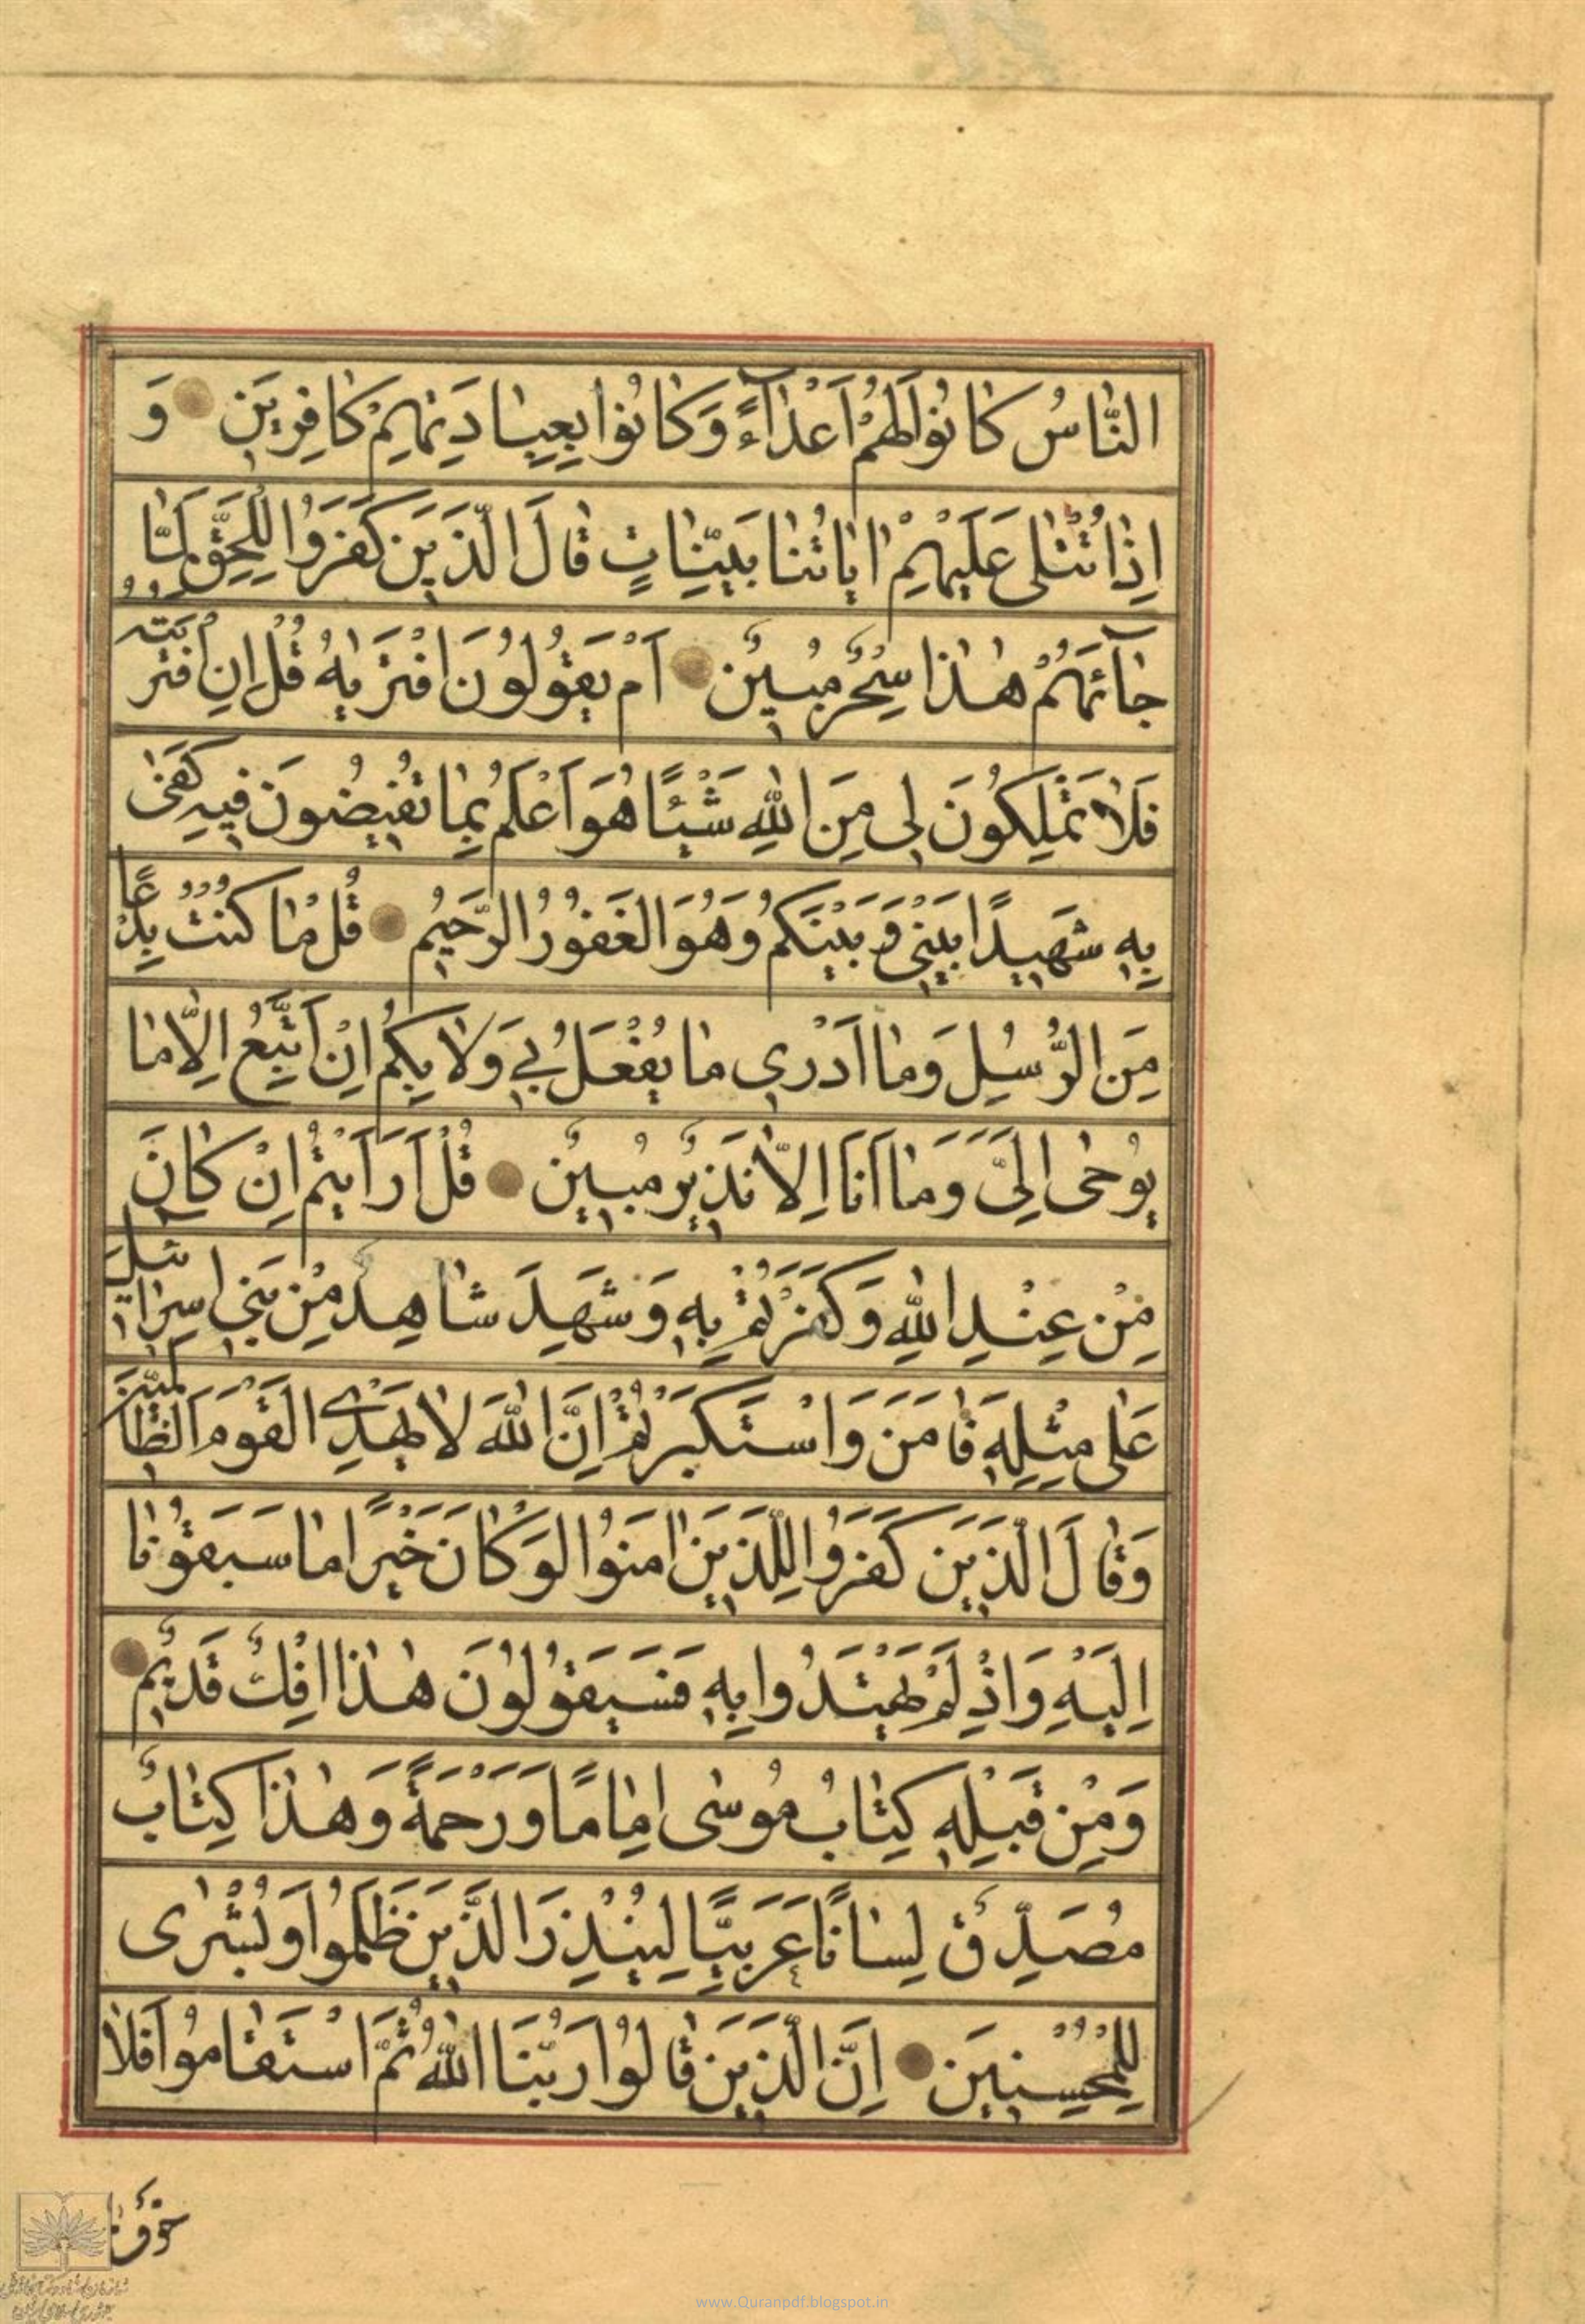 النَّاسُ كَانُوا لَهُمْ اَعْدَآءً وَكَانُوا بِعِبَادَتِهِمْ كَافِرِينَ وَ
اِذَا تُتْلٰى عَلَيْهِمْ اٰيَاتُنَا بَيِّنَاتٍ قَالَ الَّذِينَ كَفَرُوا لِلْحَقِّ لَمَّا
جَآئَهُمْ هٰذَا سِحْرٌ مُبِينٌ اَمْ يَقُولُونَ افْتَرٰيهُ قُلْ اِنِ افْتَرَيْتُهُ
فَلَا تَمْلِكُونَ لِي مِنَ اللّٰهِ شَيْئًا هُوَ اَعْلَمُ بِمَا تُفِيضُونَ فِيهِ كَفٰى
بِهِ شَهِيدًا بَيْنِي وَبَيْنَكُمْ وَهُوَ الْغَفُورُ الرَّحِيمُ قُلْ مَا كُنْتُ بِدْعًا
مِنَ الرُّسُلِ وَمَا اَدْرِي مَا يُفْعَلُ بِي وَلَا بِكُمْ اِنْ اَتَّبِعُ اِلَّا مَا
يُوحٰى اِلَيَّ وَمَا اَنَا اِلَّا نَذِيرٌ مُبِينٌ قُلْ اَرَاَيْتُمْ اِنْ كَانَ
مِنْ عِنْدِ اللّٰهِ وَكَفَرْتُمْ بِهِ وَشَهِدَ شَاهِدٌ مِنْ بَنِي اِسْرَائِيلَ
عَلٰى مِثْلِهِ فَاٰمَنَ وَاسْتَكْبَرْتُمْ اِنَّ اللّٰهَ لَا يَهْدِي الْقَوْمَ الظَّالِمِينَ
وَقَالَ الَّذِينَ كَفَرُوا لِلَّذِينَ اٰمَنُوا لَوْ كَانَ خَيْرًا مَا سَبَقُونَا
اِلَيْهِ وَاِذْ لَمْ يَهْتَدُوا بِهِ فَسَيَقُولُونَ هٰذَا اِفْكٌ قَدِيمٌ
وَمِنْ قَبْلِهِ كِتَابُ مُوسٰى اِمَامًا وَرَحْمَةً وَهٰذَا كِتَابٌ
مُصَدِّقٌ لِسَانًا عَرَبِيًّا لِيُنْذِرَ الَّذِينَ ظَلَمُوا وَبُشْرٰى
لِلْمُحْسِنِينَ اِنَّ الَّذِينَ قَالُوا رَبُّنَا اللّٰهُ ثُمَّ اسْتَقَامُوا فَلَا
خَوْفٌ
www.Quranpdf.blogspot.in